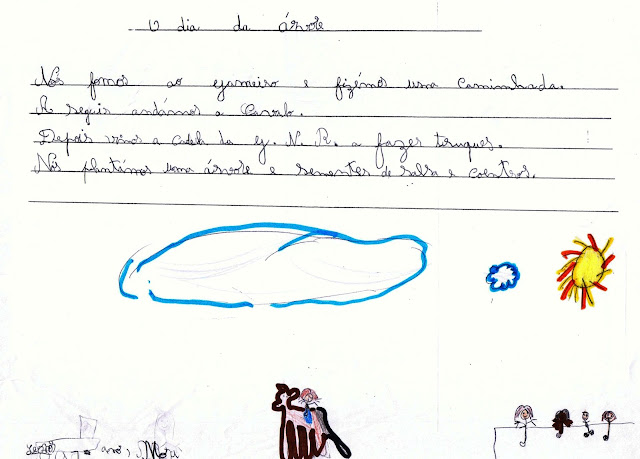 O dia da árvore
Nós fomos ao gameiro e fizémos uma caminhada.
A seguir andámos a Cavalo.
Depois vimos a cadela da G. N. R. a fazer truques.
Nós plantámos uma árvore e sementes de salsa e coentros.
anos,